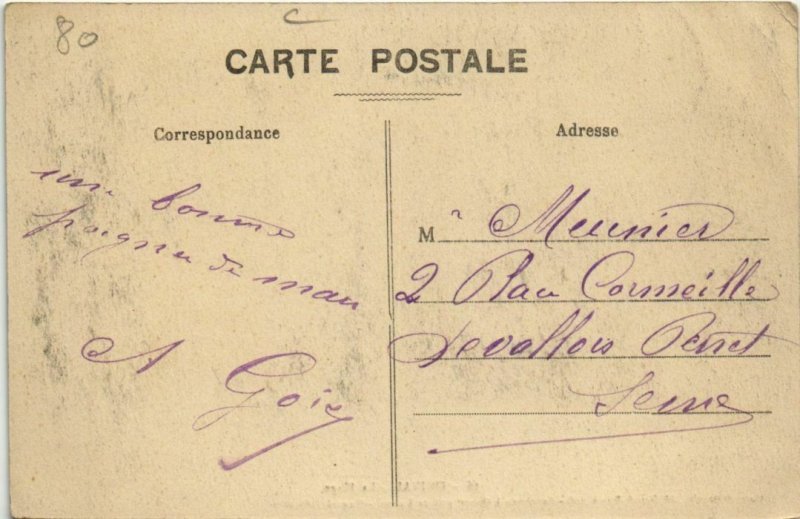 80
CARTE POSTALE
Correspondance
une bonne
poignée de main
A Goix
Adresse
Mr Meunier
2 Place Cormeille
Levallois Perret
Seine